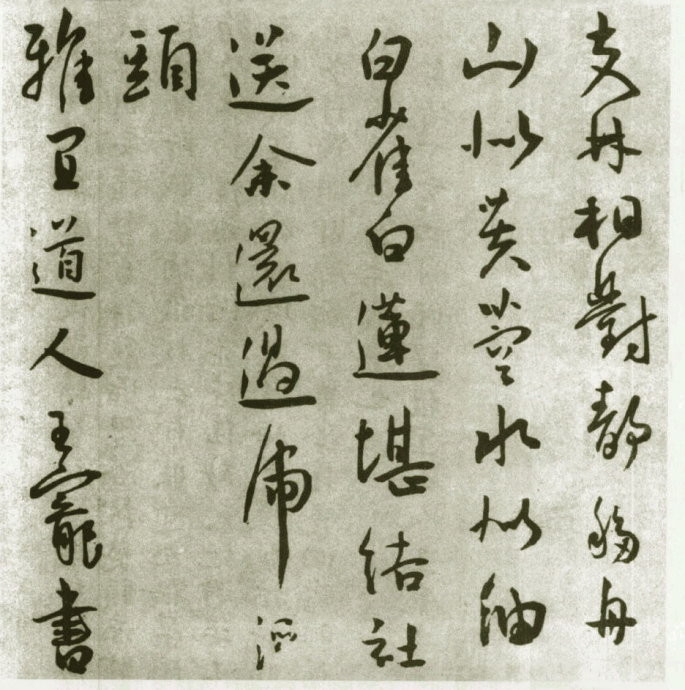 支林相對靜移舟
山似芙蓉水似油
白雀白蓮堪結社
送余還過虎溪
頭
雅宜道人王寵書